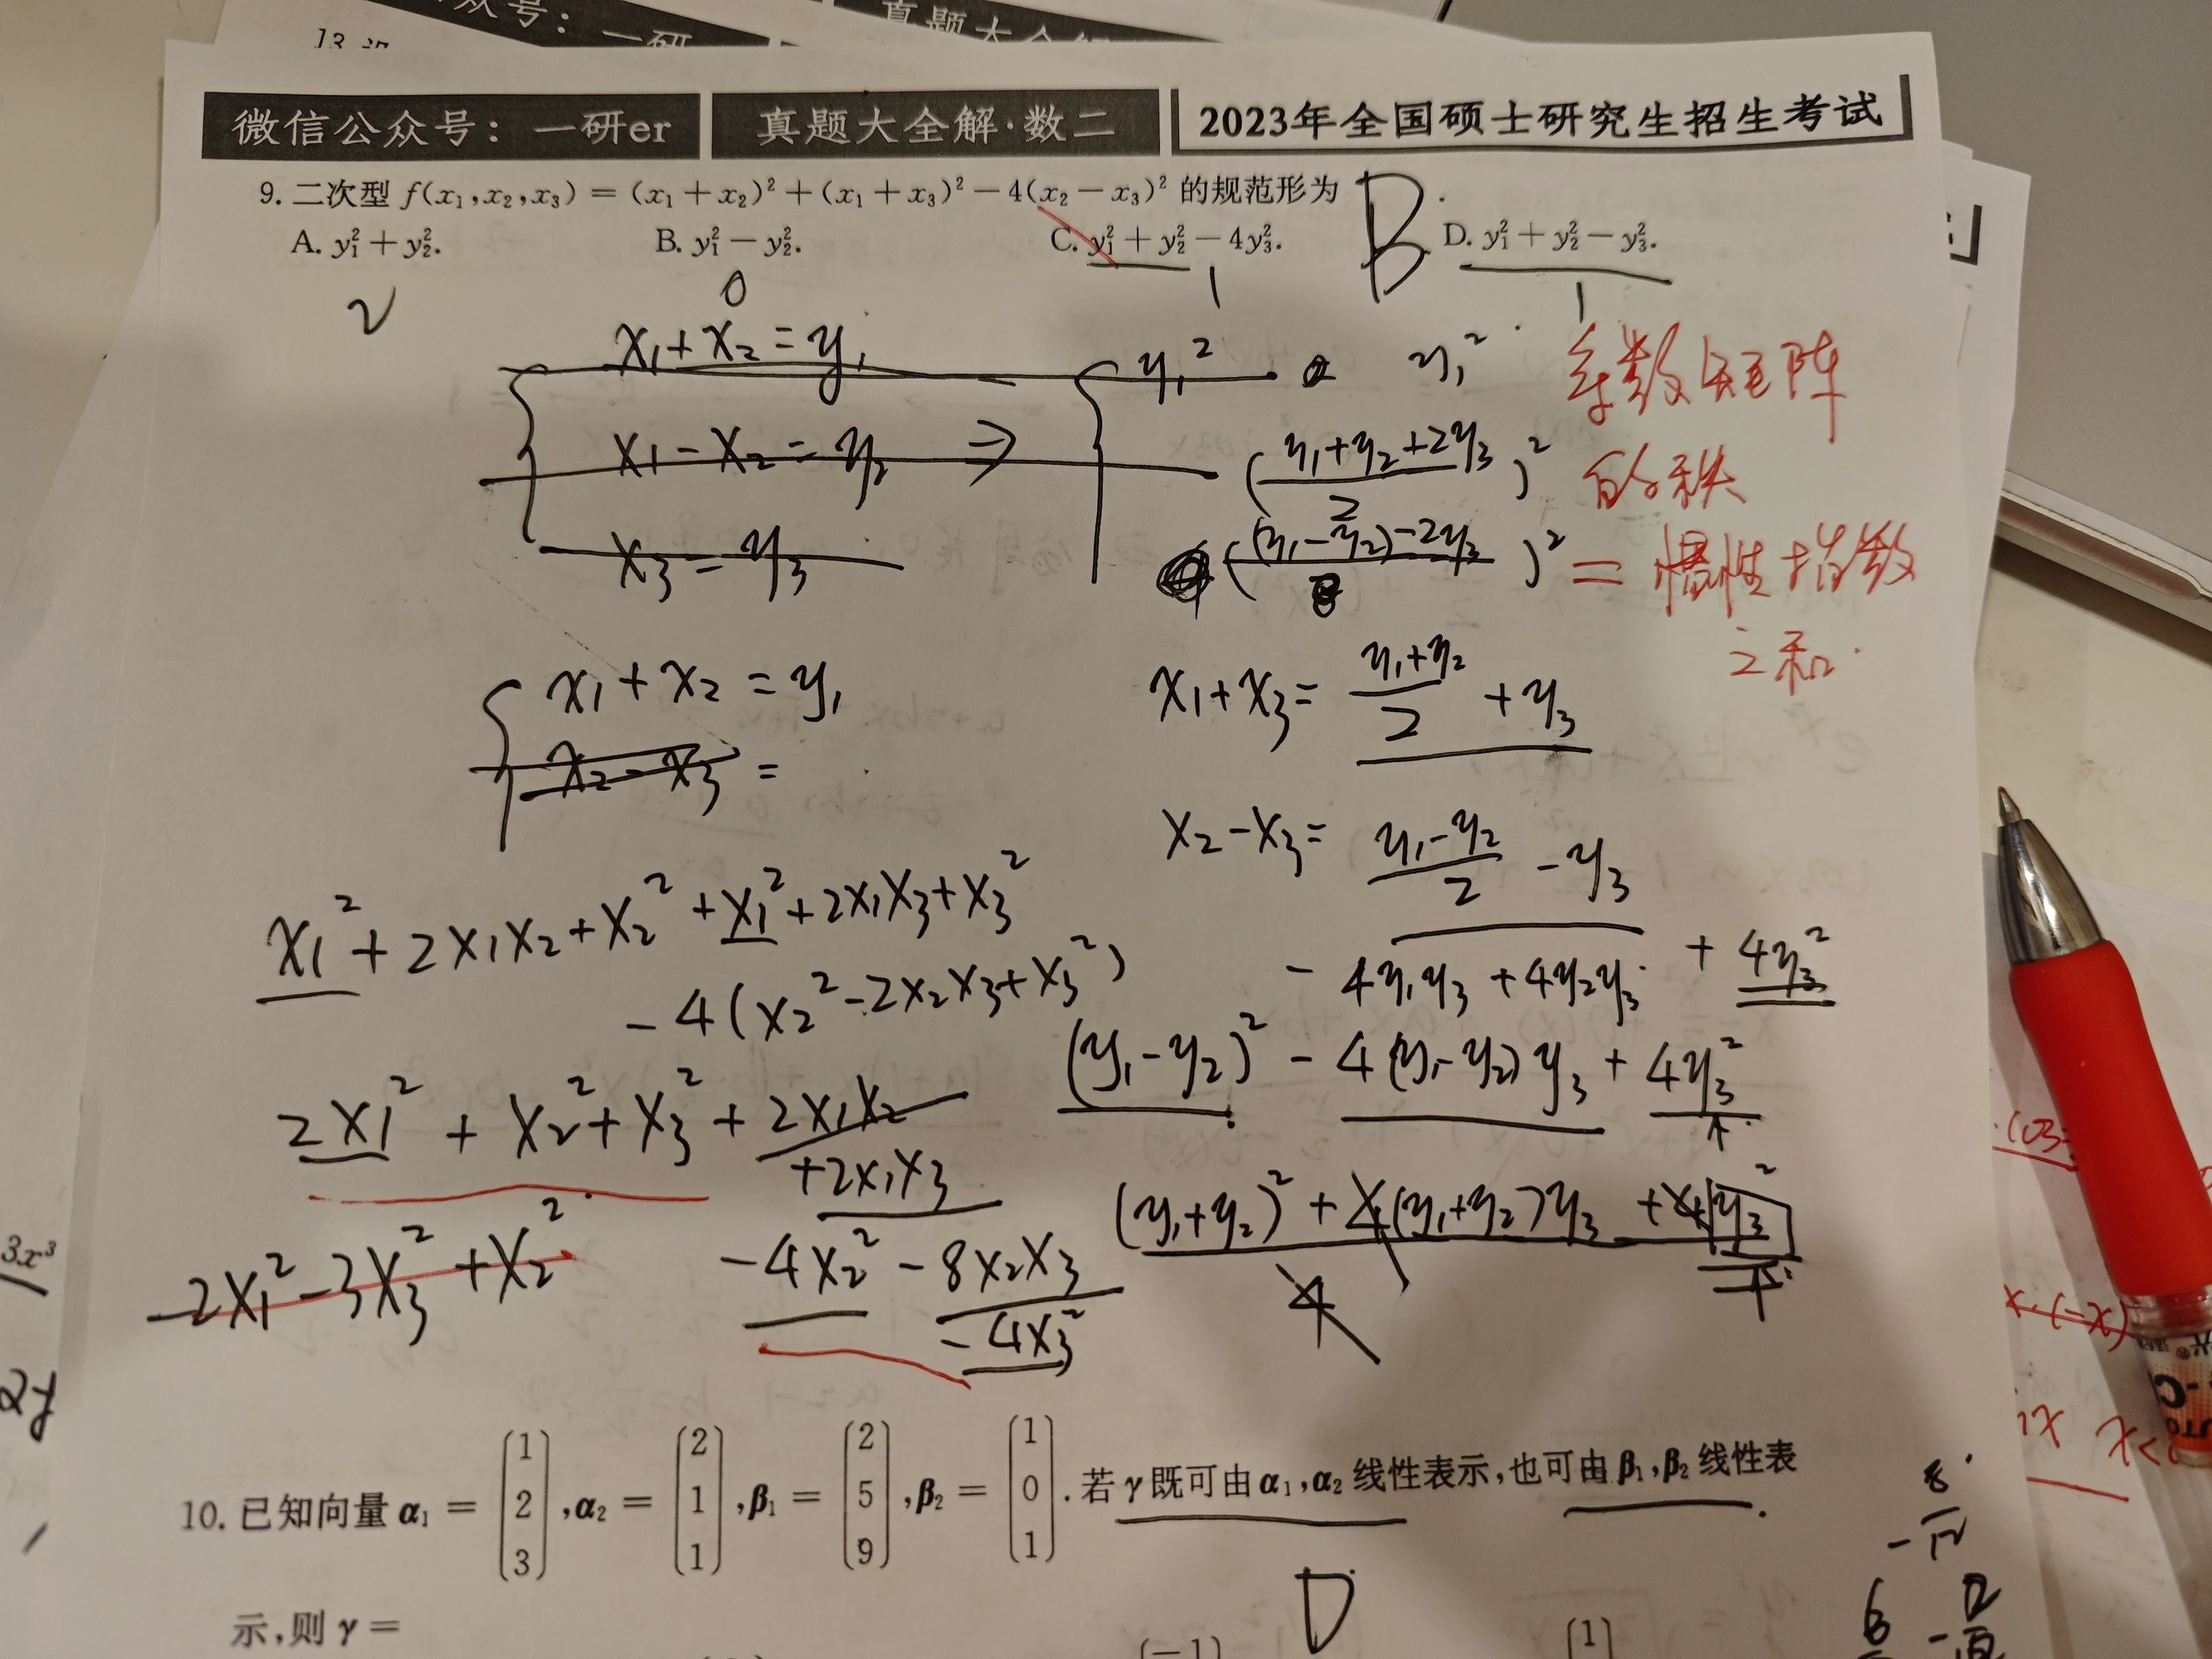 微信公众号：一研er 真题大全解·数二 2023年全国硕士研究生招生考试
9. 二次型 f(x₁,x₂,x₃) = (x₁+x₂)²+(x₁+x₃)²-4(x₂-x₃)² 的规范形为 B
A. y₁²+y₂². B. y₁²-y₂². C. y₁²+y₂²-4y₃². D. y₁²+y₂²-y₃².
2 0 1 1
x₁+x₂=y₁ y₁² y₁²
x₁-x₂=y₂ ⇒ ((y₁+y₂+2y₃)/2)²
x₃=y₃ ((y₁-y₂)-2y₃)²
系数矩阵
的秩
=惯性指数
之和.
x₁+x₂=y₁
x₂-x₃=
x₁+x₃=(y₁+y₂)/2+y₃
x₂-x₃=(y₁-y₂)/2-y₃
x₁²+2x₁x₂+x₂²+x₁²+2x₁x₃+x₃²
-4(x₂²-2x₂x₃+x₃²)
-4y₁y₃+4y₂y₃+4y₃²
(y₁-y₂)²-4(y₁-y₂)y₃+4y₃²
2x₁²+x₂²+x₃²+2x₁x₂
+2x₁x₃
(y₁+y₂)²+4(y₁+y₂)y₃+4y₃²
4
-2x₁²-3x₃²+x₂²
-4x₂²-8x₂x₃
-4x₃²
10. 已知向量 α₁ = (1 2 3), α₂ = (2 1 1), β₁ = (2 5 9), β₂ = (1 0 1). 若 γ 既可由 α₁,α₂ 线性表示,也可由 β₁,β₂ 线性表
示,则 γ = D